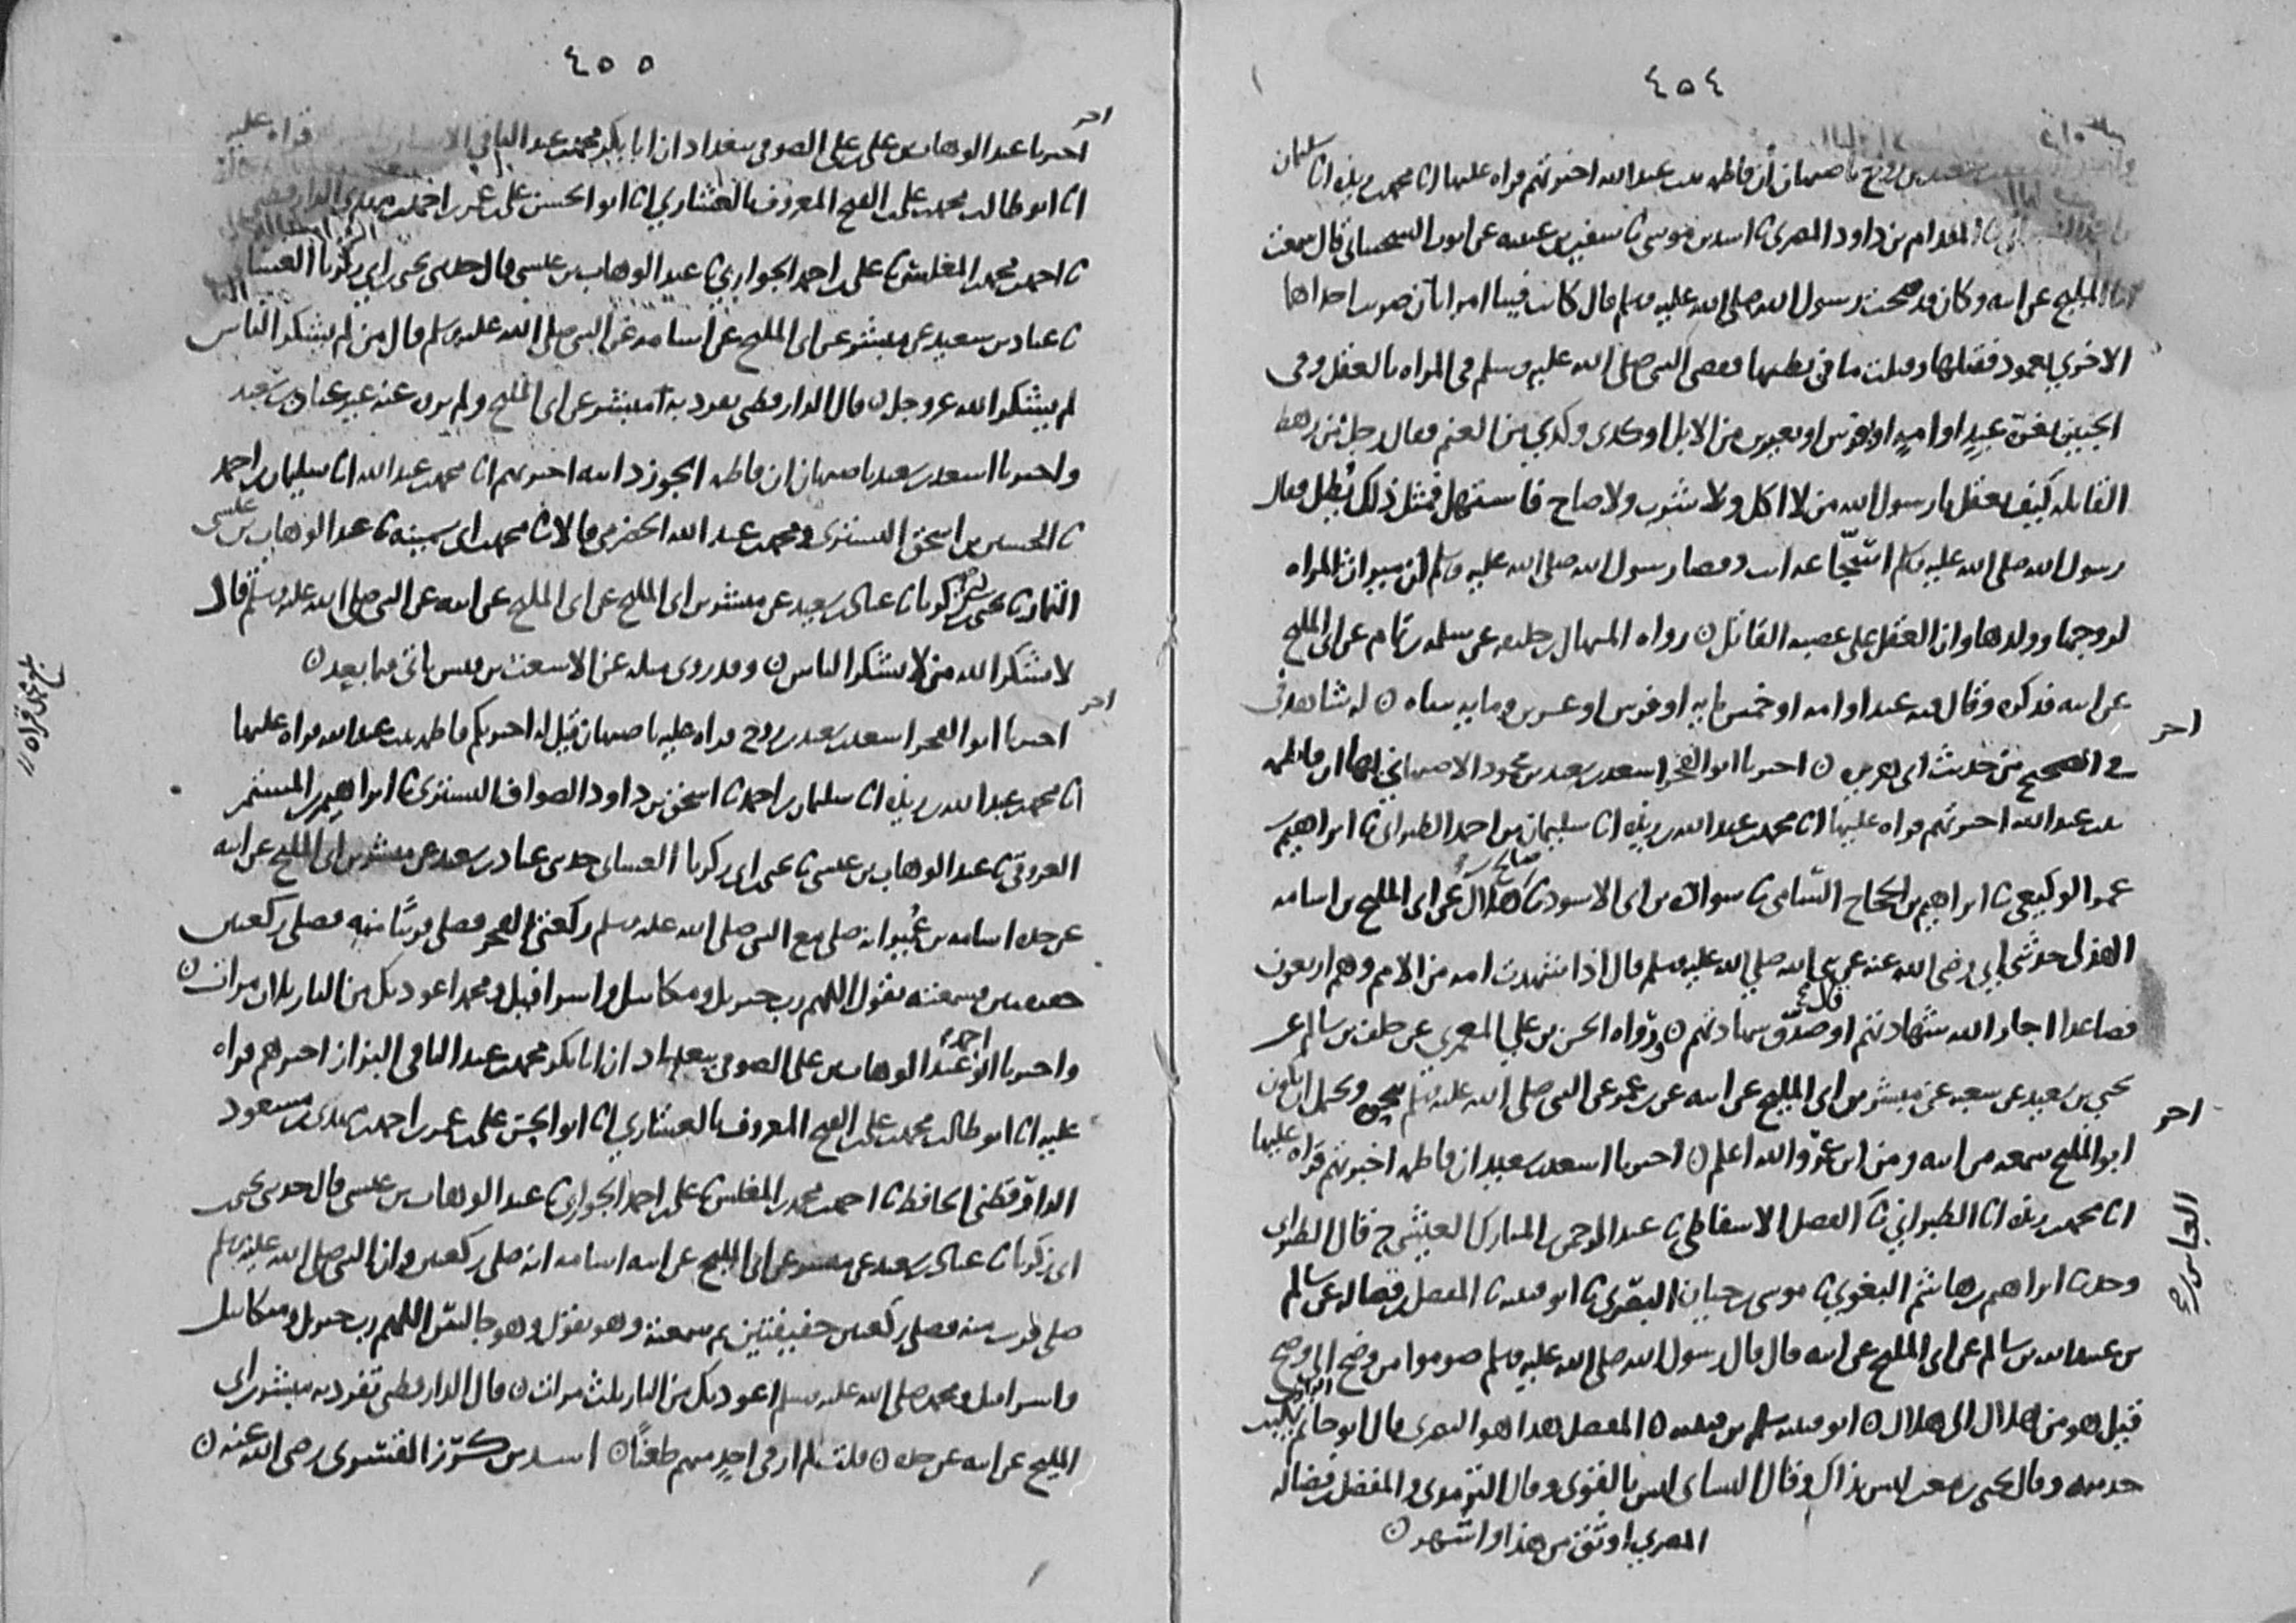 ٤٥٤
سعيد بن روح باصبهان أن فاطمة بنت عبد الله اخبرتهم قراه عليها انا محمد بن ريذه انا سليمان
نا المقدام بن داود المصري نا اسد بن موسى نا سفين بن عيينه عن ايوب السختياني قال سمعت
ابا المليح عن ابيه وكان قد صحب رسول الله صلى الله عليه وسلم قال كانت فينا امراتان ضربت احداهما
الاخرى بعمود فقتلتها وقتلت ما في بطنها فقضى النبي صلى الله عليه وسلم في المراه بالعقل وفي
الجنين بغرة عبدٍ او امةٍ او بفرس او بعيرين من الابل او كذى وكذي من الغنم فقال رجل من رهط
القاتله كيف نعقل يا رسول الله من لا اكل ولا شرب ولا صاح فاستهل فمثل ذلك يُطل فقال
رسول الله صلى الله عليه وسلم اسجّاعه انت وقضا رسول الله صلى الله عليه وسلم ان ميراث المراه
لزوجها وولدها وان العقل على عصبه القاتل ن رواه المنهال بن خليفه عن سلمه بن تمام عن ابي المليح
عن ابيه فذكره وقال فيه عبد او امه او خمس مايه او فرس او عشرين وماية شاه ن له شاهد في
في الصحيح من حديث ابي هريره ن اخبرنا ابو الفخر اسعد بن سعيد بن محمود الاصبهاني بها ان فاطمه
اخر
بنت عبد الله اخبرتهم قراه عليها انا محمد بن عبد الله بن ريذه انا سليمان بن احمد الطبراني نا ابراهيم بن
عمر الوكيعي نا ابراهيم بن الحجاج السّامي نا سواده بن ابي الاسود نا صالح بن هلال عن ابي المليح بن اسامه
الهذلي حدثني ابي رضي الله عنه عن نبي الله صلى الله عليه وسلم قال اذا شهدت امه من الامم وهم اربعون
فصاعدا اجاز الله شهادتهم او قال صدّق شهادتهم ن ورواه الحسن بن علي المعمري عن خلف بن سالم عن
يحيي بن سعيد عن شعبه عن مبشر بن ابي المليح عن ابيه عن ابن عمر عن النبي صلى الله عليه وسلم بنحوه ويحتمل ان يكون
ابو المليح سمعه من ابيه ومن ابن عمر والله اعلم ن اخبرنا اسعد بن سعيد ان فاطمه اخبرتهم قراه عليها
اخر
انا محمد بن ريذه انا الطبراني نا العباس بن الفضل الاسفاطي نا عبد الرحمن بن المبارك العيشي ح قال الطبراني
وحدثنا ابراهيم بن هاشم البغوي نا موسى بن حيان البصري نا ابو قتيبه نا المفضل بن فضاله عن سالم
بن عبيد الله بن سالم عن ابي المليح عن ابيه قال قال رسول الله صلى الله عليه وسلم صوموا من وضح الى وضح
قيل هو من هلال الى هلال ن ابو قتيبه سلم بن قتيبه ن المفضل هذا هو البصري قال ابو حاتم الرازي يكتب
حديثه وقال يحيى بن معين ليس بذاك وقال النسائي ليس بالقوى وقال الترمذي والمفضل بن فضاله
المصري اوثق من هذا واشهر ن
٤٥٥
اخر
اخبرنا عبد الوهاب بن علي بن علي الصوفي ببغداد ان ابا بكر محمد بن عبد الباقي الانصاري قراه عليه
انا ابو طالب محمد بن علي بن الفتح المعروف بالعشاري انا ابو الحسن علي بن عمر بن احمد بن مهدي الدارقطني
نا احمد بن محمد بن المغلس نا علي بن احمد الجواربي نا عبد الوهاب بن عيسى قال حدثني يحيى بن ابي زكريا الغساني
نا عباد بن سعيد عن مبشر عن ابي المليح عن اسامه عن النبي صلى الله عليه وسلم قال من لم يشكر الناس
لم يشكر الله عز وجل ن قال الدارقطني تفرد به مبشر عن ابي المليح ولم يرو عنه غير عباد بن سعيد
واخبرنا اسعد بن سعيد باصبهان ان فاطمه الجوزدانيه اخبرتهم انا محمد بن عبد الله انا سليمان بن احمد
نا الحسين بن اسحق التستري ومحمد بن عبد الله الحضرمي قالا نا محمد بن ابي سمينه نا عبد الوهاب بن عيسى
التمار نا يحيى بن ابي زكريا نا عباد بن سعيد عن مبشر بن ابي المليح عن ابي المليح عن ابيه عن النبي صلى الله عليه وسلم قال
لا يشكر الله من لا يشكر الناس ن وقد روى مثله عن الاشعث بن قيس ياتي فيما بعد ن
اخر
اخبرنا ابو الفخر اسعد بن سعيد بن روح قراه عليه باصبهان قيل له اخبرتكم فاطمه بنت عبد الله قراه عليها
انا محمد بن عبد الله بن ريذه انا سليمان بن احمد نا اسحق بن داود الصواف التستري نا ابراهيم بن المستمر
العروقي نا عبد الوهاب بن عيسى نا يحيى بن ابي زكريا الغساني حدثني عباد بن سعيد عن مبشر بن ابي المليح عن ابيه
عن جده اسامه بن عُمير انه صلى مع النبي صلى الله عليه وسلم ركعتي الفجر فصلى قريبًا منه فصلى ركعتين
خفيفتين فسمعته يقول اللهم رب جبريل وميكاييل واسرافيل ومحمد اعوذ بك من النار ثلاث مرات ن
واخبرنا ابو احمد عبد الوهاب بن علي الصوفي ببغداد ان ابا بكر محمد بن عبد الباقي البزاز اخبرهم قراه
عليه انا ابو طالب محمد بن علي بن الفتح المعروف بالعشاري انا ابو الحسن علي بن عمر بن احمد بن مهدي بن مسعود
الدارقطني الحافظ نا احمد بن محمد بن المغلس نا علي بن احمد الجواربي نا عبد الوهاب بن عيسى قال حدثني يحيى بن
ابي زكريا نا عباد بن سعيد عن مبشر عن ابي المليح عن ابيه اسامه انه صلى ركعتين وان النبي صلى الله عليه وسلم
صلى قريب منه فصلى ركعتين خفيفتين ثم سمعته وهو يقول وهو جالس اللهم رب جبريل وميكاييل
واسرافيل ومحمد صلى الله عليه وسلم اعوذ بك من النار ثلث مرات ن قال الدارقطني تفرد به مبشر بن ابي
المليح عن ابيه عن جده ن قلت لم ار في احدٍ منهم طعنًا ن اسد بن كرز القشيري رضي الله عنه ن